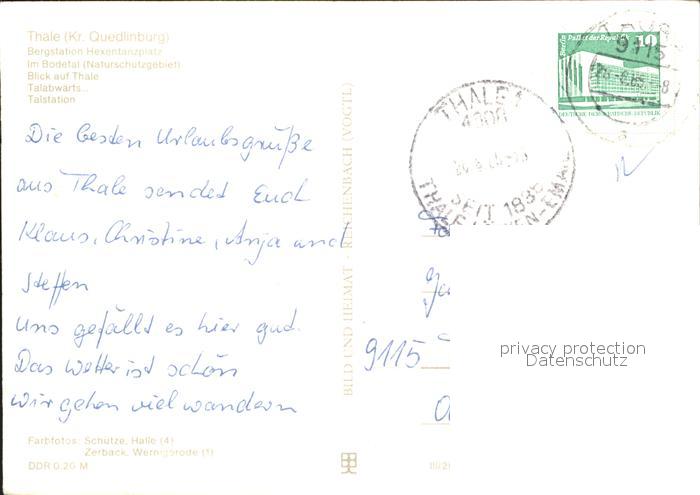 Thale (Kr. Quedlinburg)
Bergstation Hexentanzplatz
Im Bodetal (Naturschutzgebiet)
Blick auf Thale
Talabwärts...
Talstation
Die besten Urlaubsgrüße
aus Thale sendet Euch
Klaus, Christine, Anja und
Steffen
Uns gefällt es hier gut.
Das Wetter ist schön
wir gehen viel wandern
Farbfotos: Schütze, Halle (4)
Zerback, Wernigerode (1)
DDR 0,20 M
BILD UND HEIMAT · REICHENBACH (VOGTL)
Berlin Palast der Republik 10
DEUTSCHE DEMOKRATISCHE REPUBLIK
9115
THALE 1
SEIT 1835
9115
privacy protection
Datenschutz